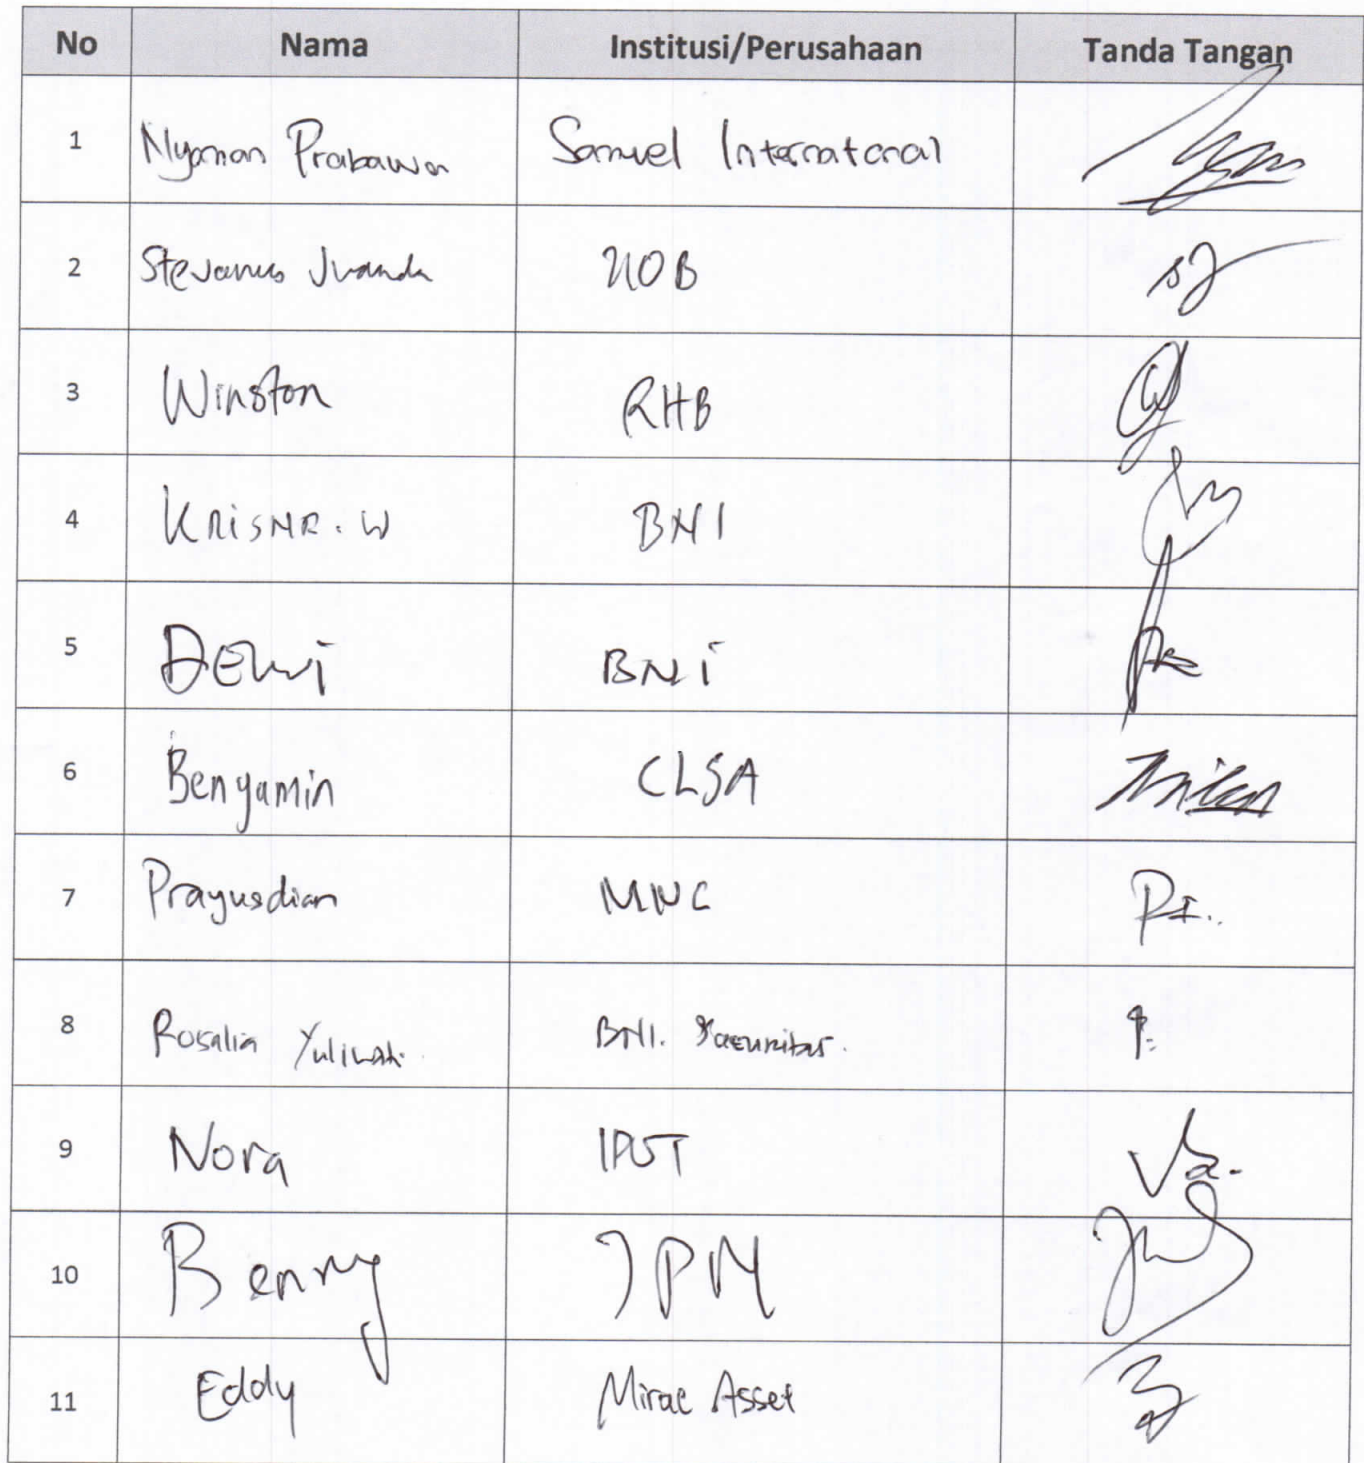 No Nama Institusi/Perusahaan Tanda Tangan
1 Nyoman Prabawa Samuel International
2 Stevanus Juanda UOB
3 Winston RHB
4 KRISNA. W BNI
5 DEWI BNI
6 Benyamin CLSA
7 Prayusdian MNC
8 Rosalia Yuliwati BNI. Securities.
9 Nora IPOT
10 Benny JPM
11 Eddy Mirae Asset